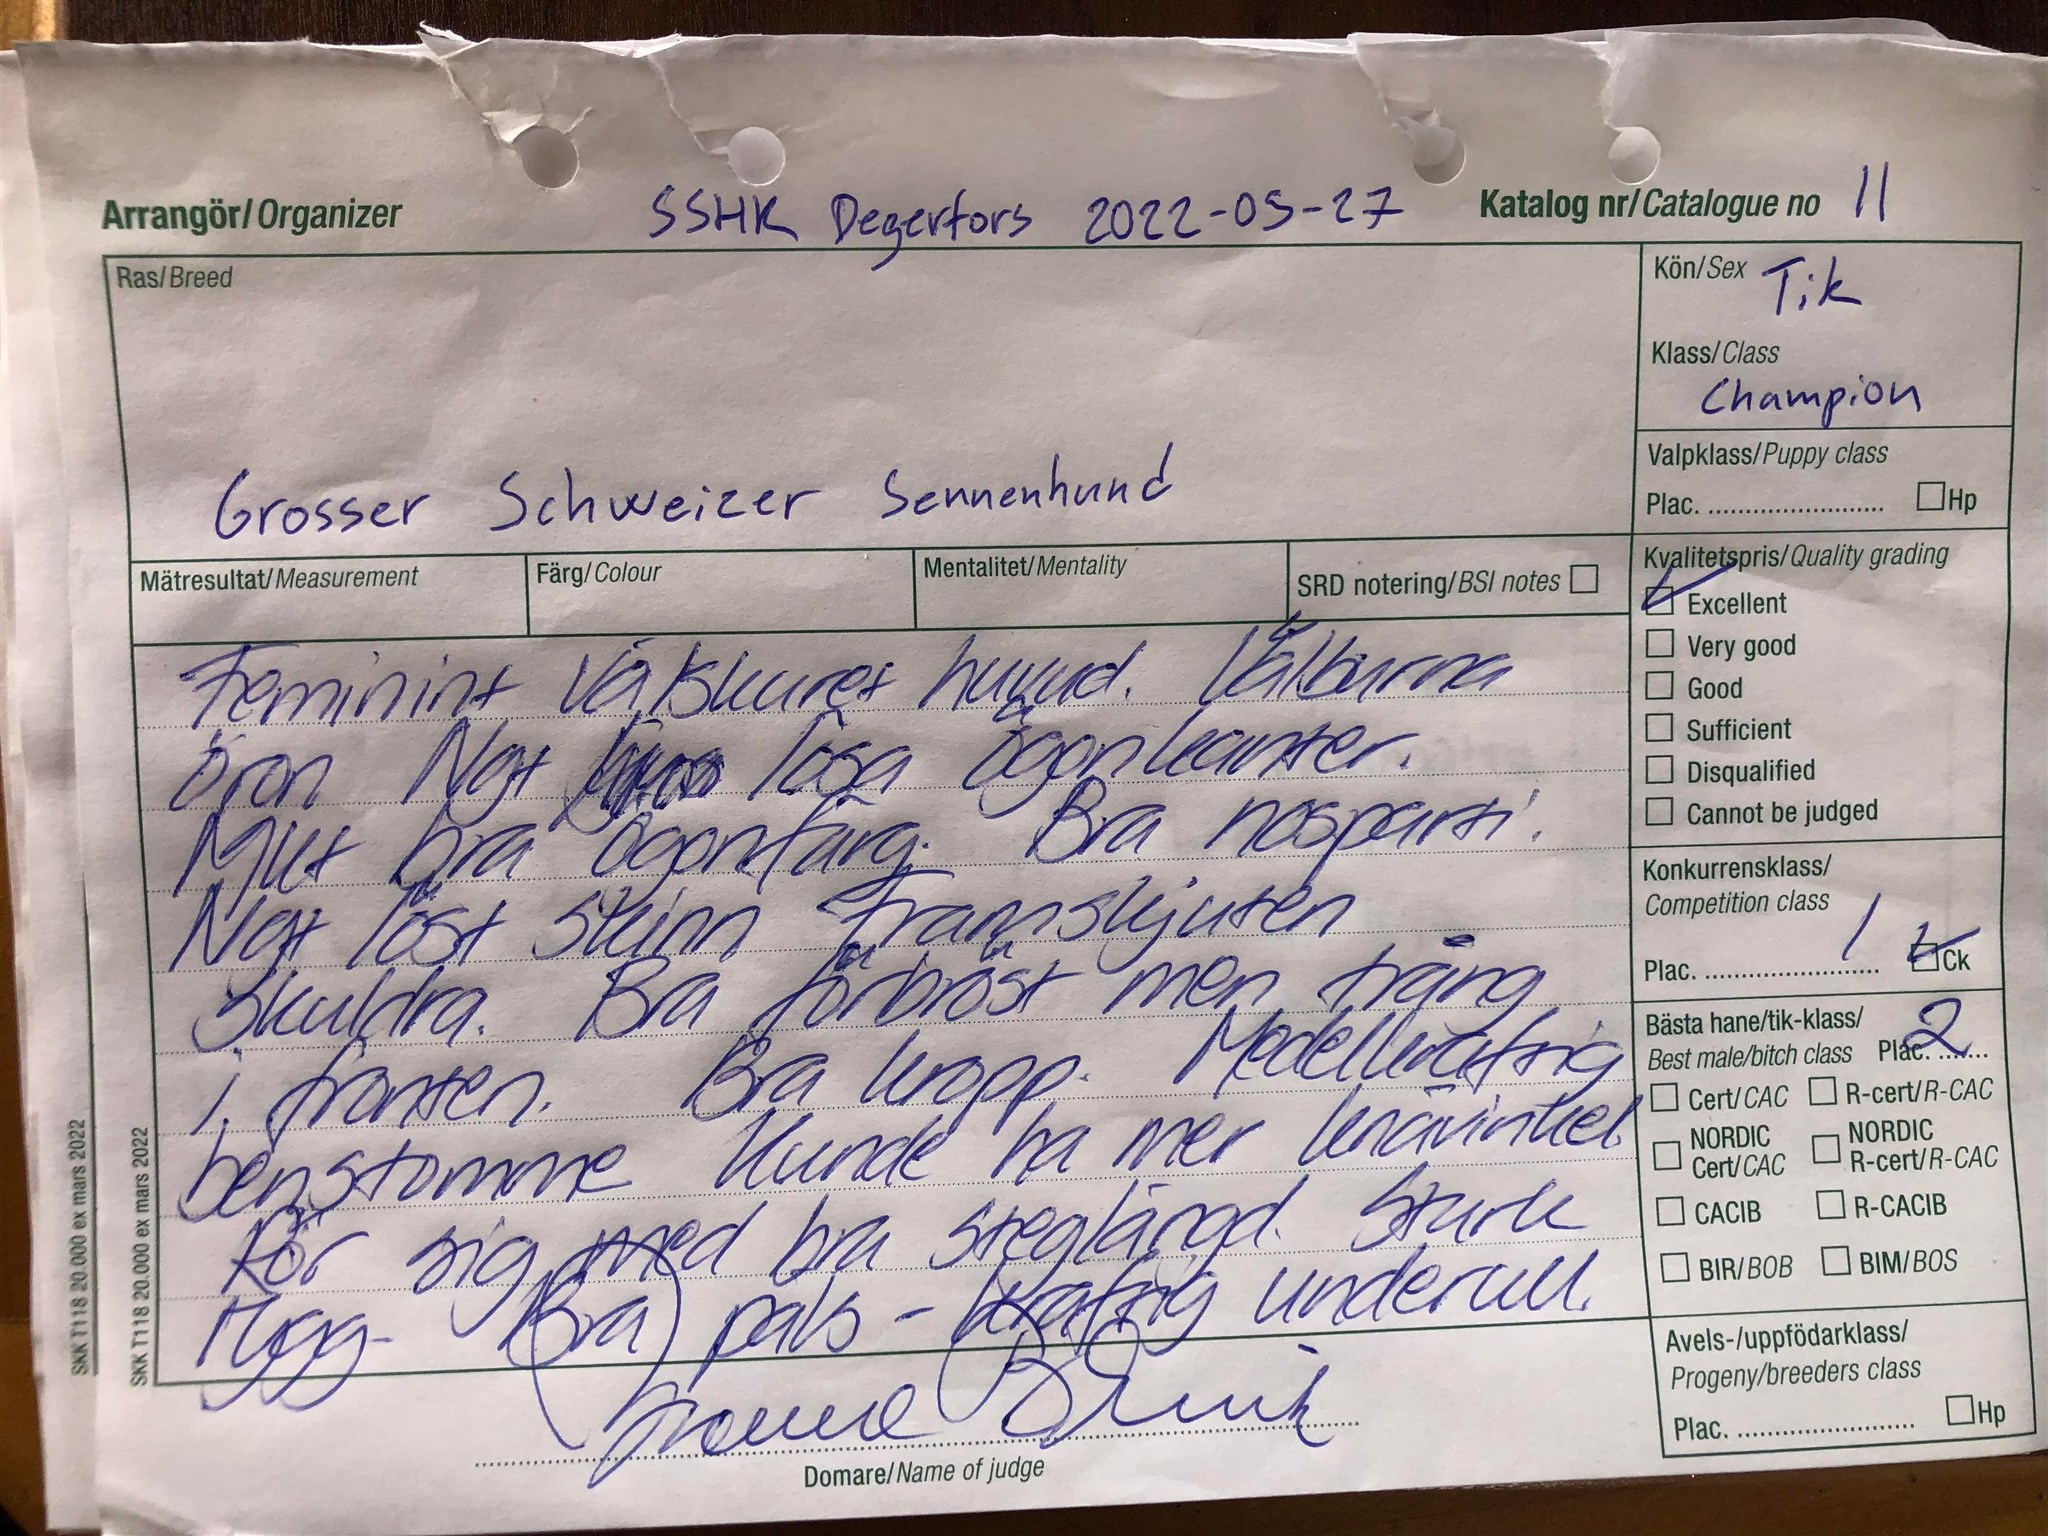 Arrangör/Organizer SSHK Degerfors 2022-05-27 Katalog nr/Catalogue no 11
Ras/Breed
Grosser Schweizer Sennenhund
Kön/Sex Tik
Klass/Class
Champion
Valpklass/Puppy class
Plac. ........................ Hp
Mätresultat/Measurement Färg/Colour Mentalitet/Mentality SRD notering/BSI notes
Kvalitetspris/Quality grading
Excellent
Very good
Good
Sufficient
Disqualified
Cannot be judged
Konkurrensklass/
Competition class
Plac. ........................ 1 Ck
Bästa hane/tik-klass/
Best male/bitch class Plac. ....... 2
Cert/CAC R-cert/R-CAC
NORDIC Cert/CAC NORDIC R-cert/R-CAC
CACIB R-CACIB
BIR/BOB BIM/BOS
Avels-/uppfödarklass/
Progeny/breeders class
Plac. ......................... Hp
Feminint välskuret huvud. Välburna
öron Ngt lösa ögonkanter.
Mkt bra ögonfärg. Bra nosparti.
Ngt löst skinn Framskjuten
skuldra. Bra förbröst men trång
i fronten. Bra kropp. Medelkraftig
benstomme Kunde ha mer knävinkel.
Rör sig med bra steglängd. Stark
rygg. Bra päls - kraftig underull.
Domare/Name of judge
SKK T118 20.000 ex mars 2022
SKK T118 20.000 ex mars 2022